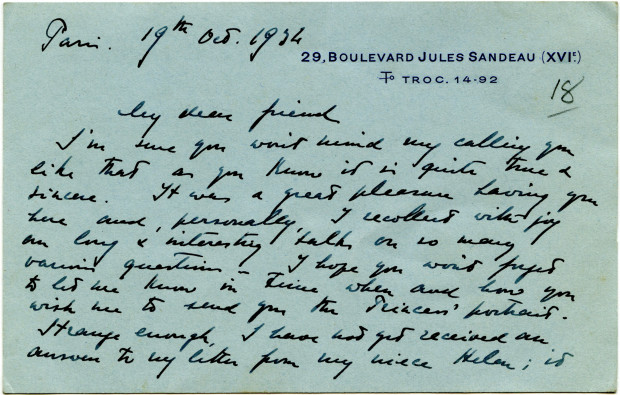 Paris. 19th Oct. 1934
29, BOULEVARD JULES SANDEAU (XVIE)
To TROC. 14-92
18
My dear friend
I'm sure you won't mind my calling you
like that as you know it is quite true &
sincere. It was a great pleasure having you
here and, personally, I recollect with joy
our long & interesting talks on so many
various questions – I hope you won't forget
to let me know in time when and how you
wish me to send you the Princess' portrait.
Strange enough, I have not yet received an
answer to my letter from my niece Helen; it